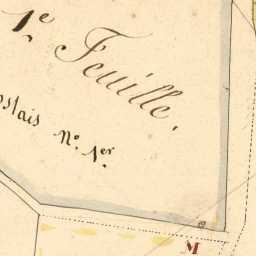 1e Feuille,
No. 1er
M